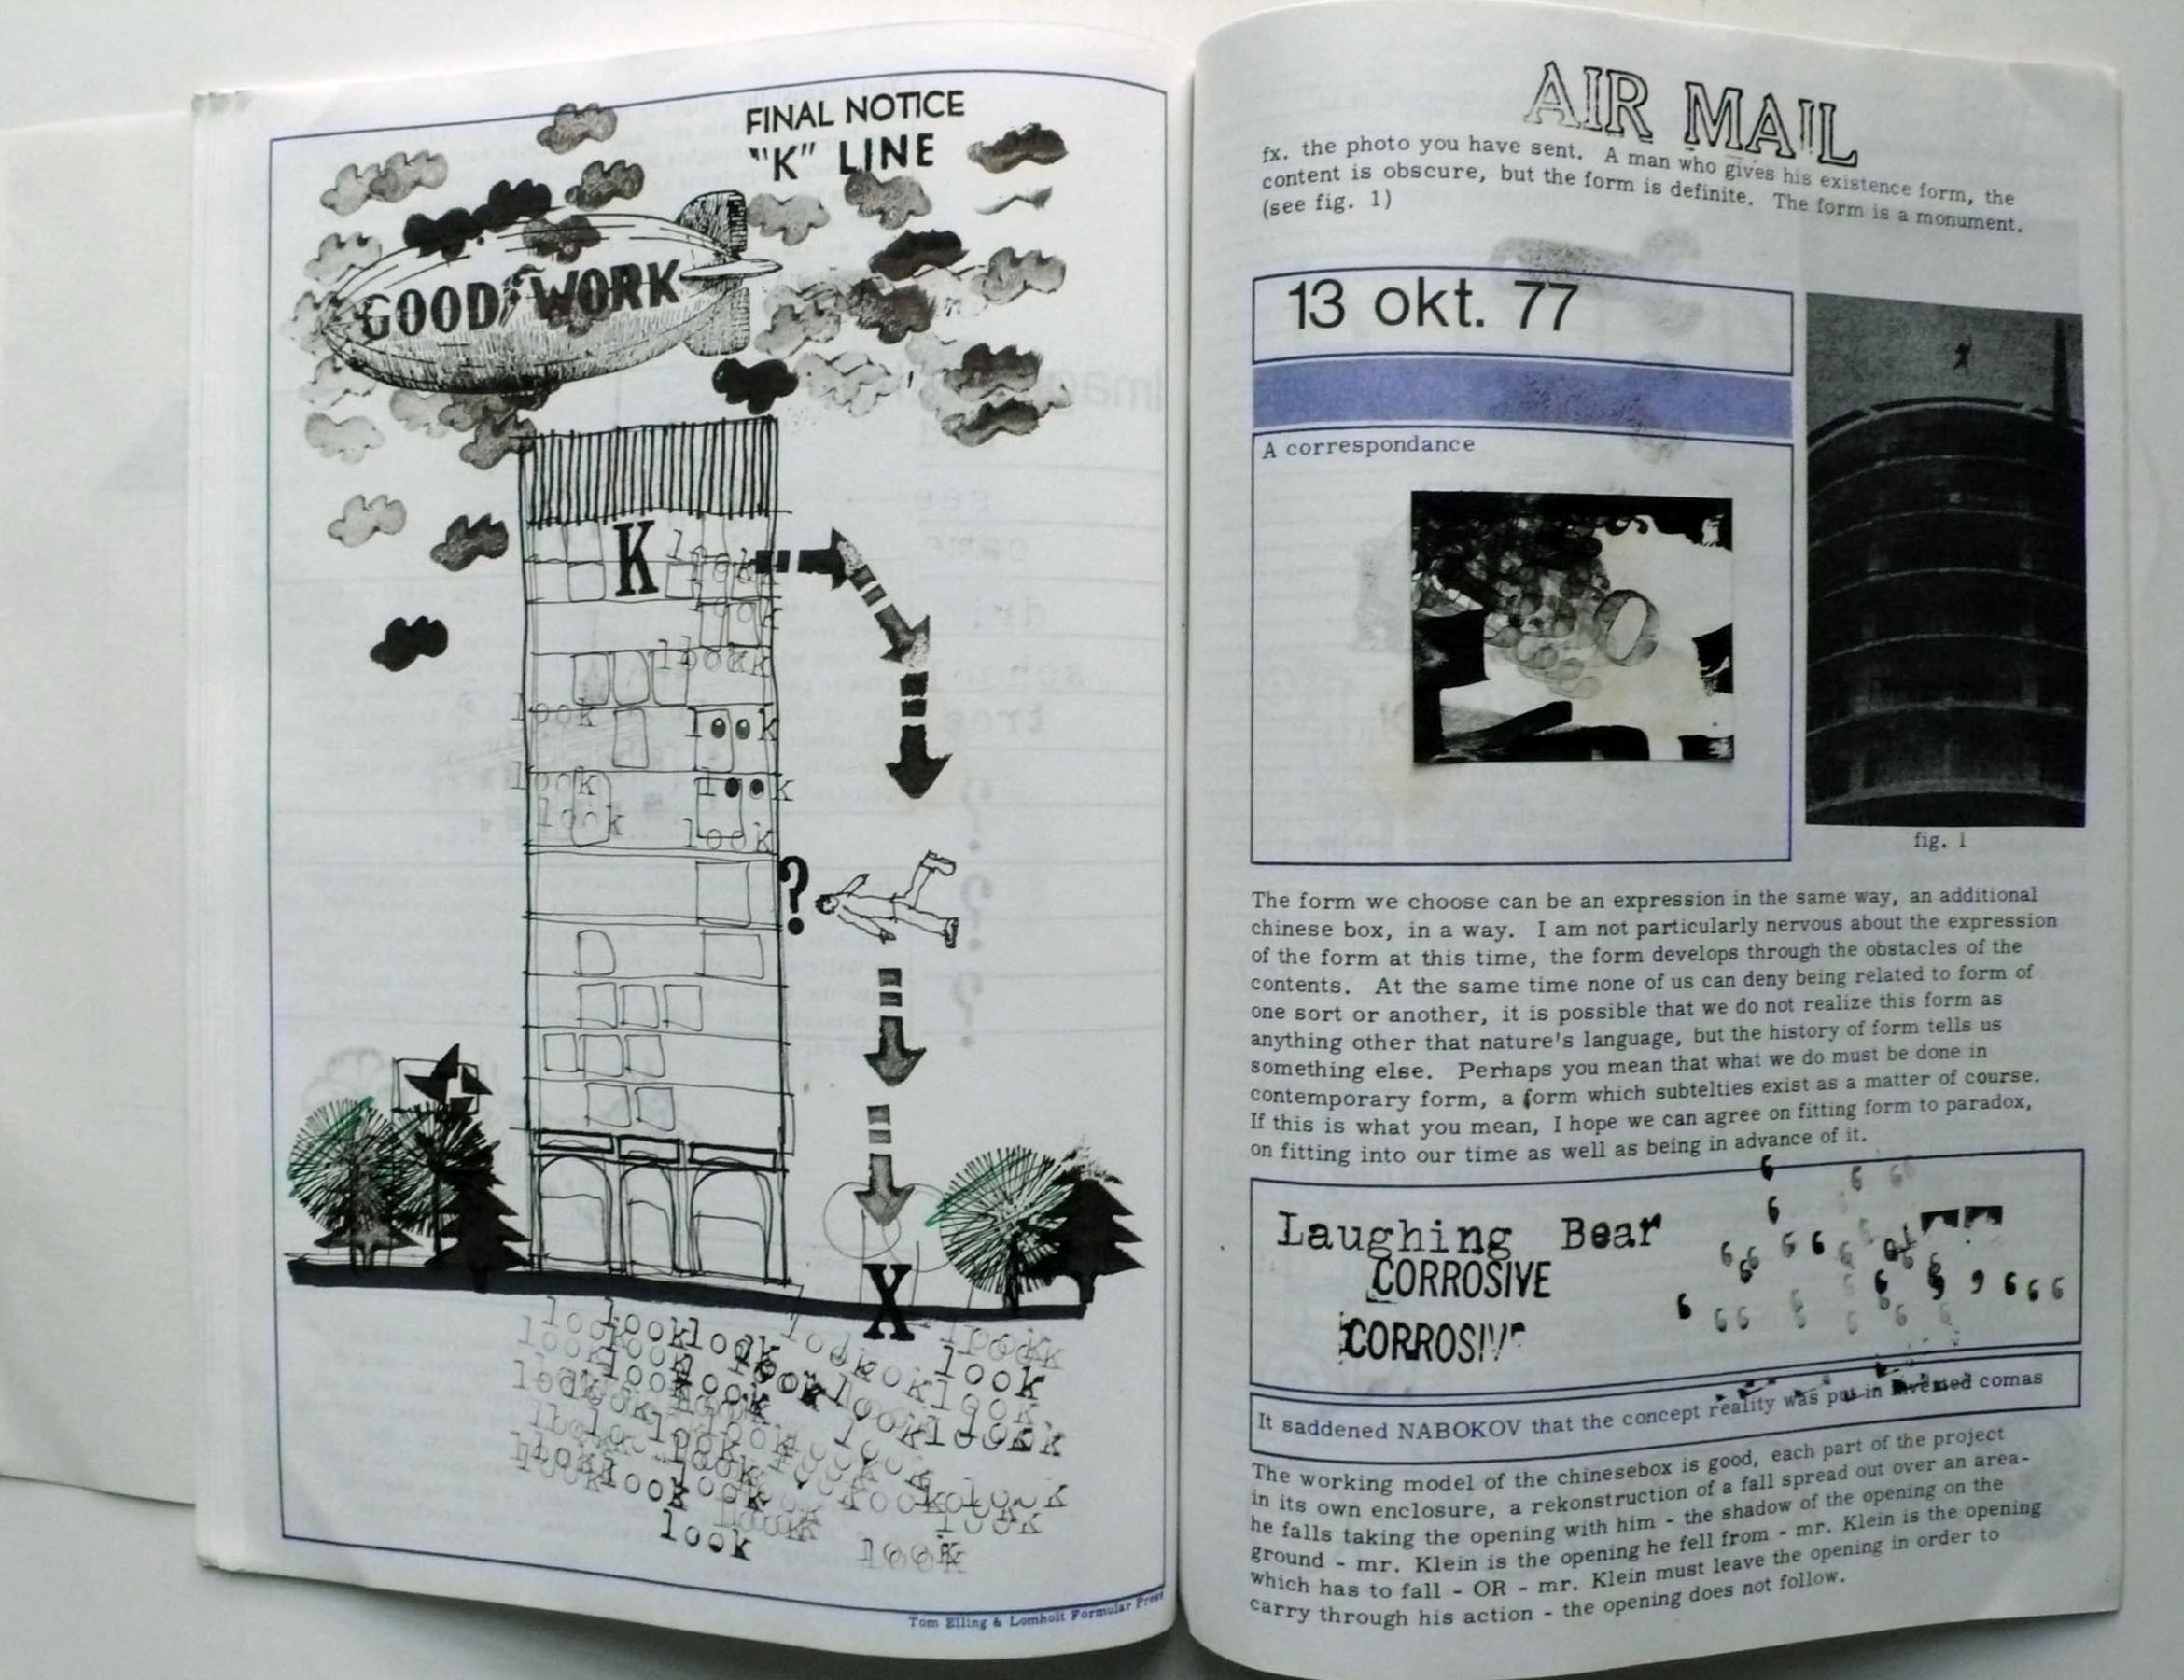 FINAL NOTICE
"K" LINE
GOOD WORK
K
look
look
look
look
look
look
look
look
look
look
?
X
look
look
look
look
look
look
look
look
Tom Elling & Lomholt Formular Press
AIR MAIL
fx. the photo you have sent. A man who gives his existence form, the
content is obscure, but the form is definite. The form is a monument.
(see fig. 1)
13 okt. 77
A correspondance
fig. 1
The form we choose can be an expression in the same way, an additional
chinese box, in a way. I am not particularly nervous about the expression
of the form at this time, the form develops through the obstacles of the
contents. At the same time none of us can deny being related to form of
one sort or another, it is possible that we do not realize this form as
anything other that nature's language, but the history of form tells us
something else. Perhaps you mean that what we do must be done in
contemporary form, a form which subtelties exist as a matter of course.
If this is what you mean, I hope we can agree on fitting form to paradox,
on fitting into our time as well as being in advance of it.
Laughing Bear
CORROSIVE
CORROSIV
It saddened NABOKOV that the concept reality was put in inverted comas
The working model of the chinesebox is good, each part of the project
in its own enclosure, a rekonstruction of a fall spread out over an area-
he falls taking the opening with him - the shadow of the opening on the
ground - mr. Klein is the opening he fell from - mr. Klein is the opening
which has to fall - OR - mr. Klein must leave the opening in order to
carry through his action - the opening does not follow.